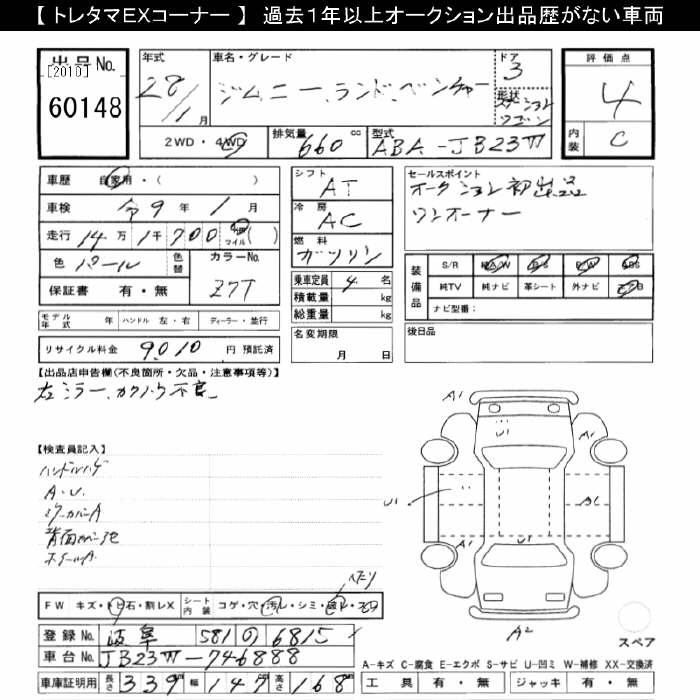 【 トレタマEXコーナー 】 過去１年以上オークション出品歴がない車両
出品No.
[2010]
60148
年式
28/1月
車名・グレード
ジムニー、ランド、ベンチャー
ドア
3
形状
ステーションワゴン
評価点
4
内装
C
2WD・4WD
排気量
660 cc
型式
ABA-JB23W
車歴 自家用・( )
車検 令9年1月
走行 14万1千700 km マイル ( )
色 パール
色替
カラーNo.
Z7T
保証書 有・無
モデル年式 年 ハンドル 左・右 ディーラー・並行
リサイクル料金 9010 円 預託済
シフト
AT
冷房
AC
燃料
ガソリン
乗車定員 4 名
積載量 kg
総重量 kg
名変期限
月 日
セールスポイント
オークション初出品
ワンオーナー
装備品
S/R AAW P/S P/W ABS
純TV 純ナビ 革シート 外ナビ エアB
ナビ型番:
後日品
【出品店申告欄(不良箇所・欠品・注意事項等)】
左ミラー、カクノウ不良
【検査員記入】
ハンドルハゲ
A.U.
ミラーカバーA
背面カバー他
ホイールA
A1
U1
A1
U1
A1
A1
U1
A1
A2
スペア
ヘタリ
FW キズ・トビ石・割レX シート内装 コゲ・穴・汚レ・シミ・破レ・スレ
登録No. 岐阜 581 の 6815
車台No. JB23W-746888
車庫証明用 長さ 339 幅 147 高さ 168
A-キズ C-腐食 E-エクボ S-サビ U-凹ミ W-補修 XX-交換済
工具 有・無 ジャッキ 有・無